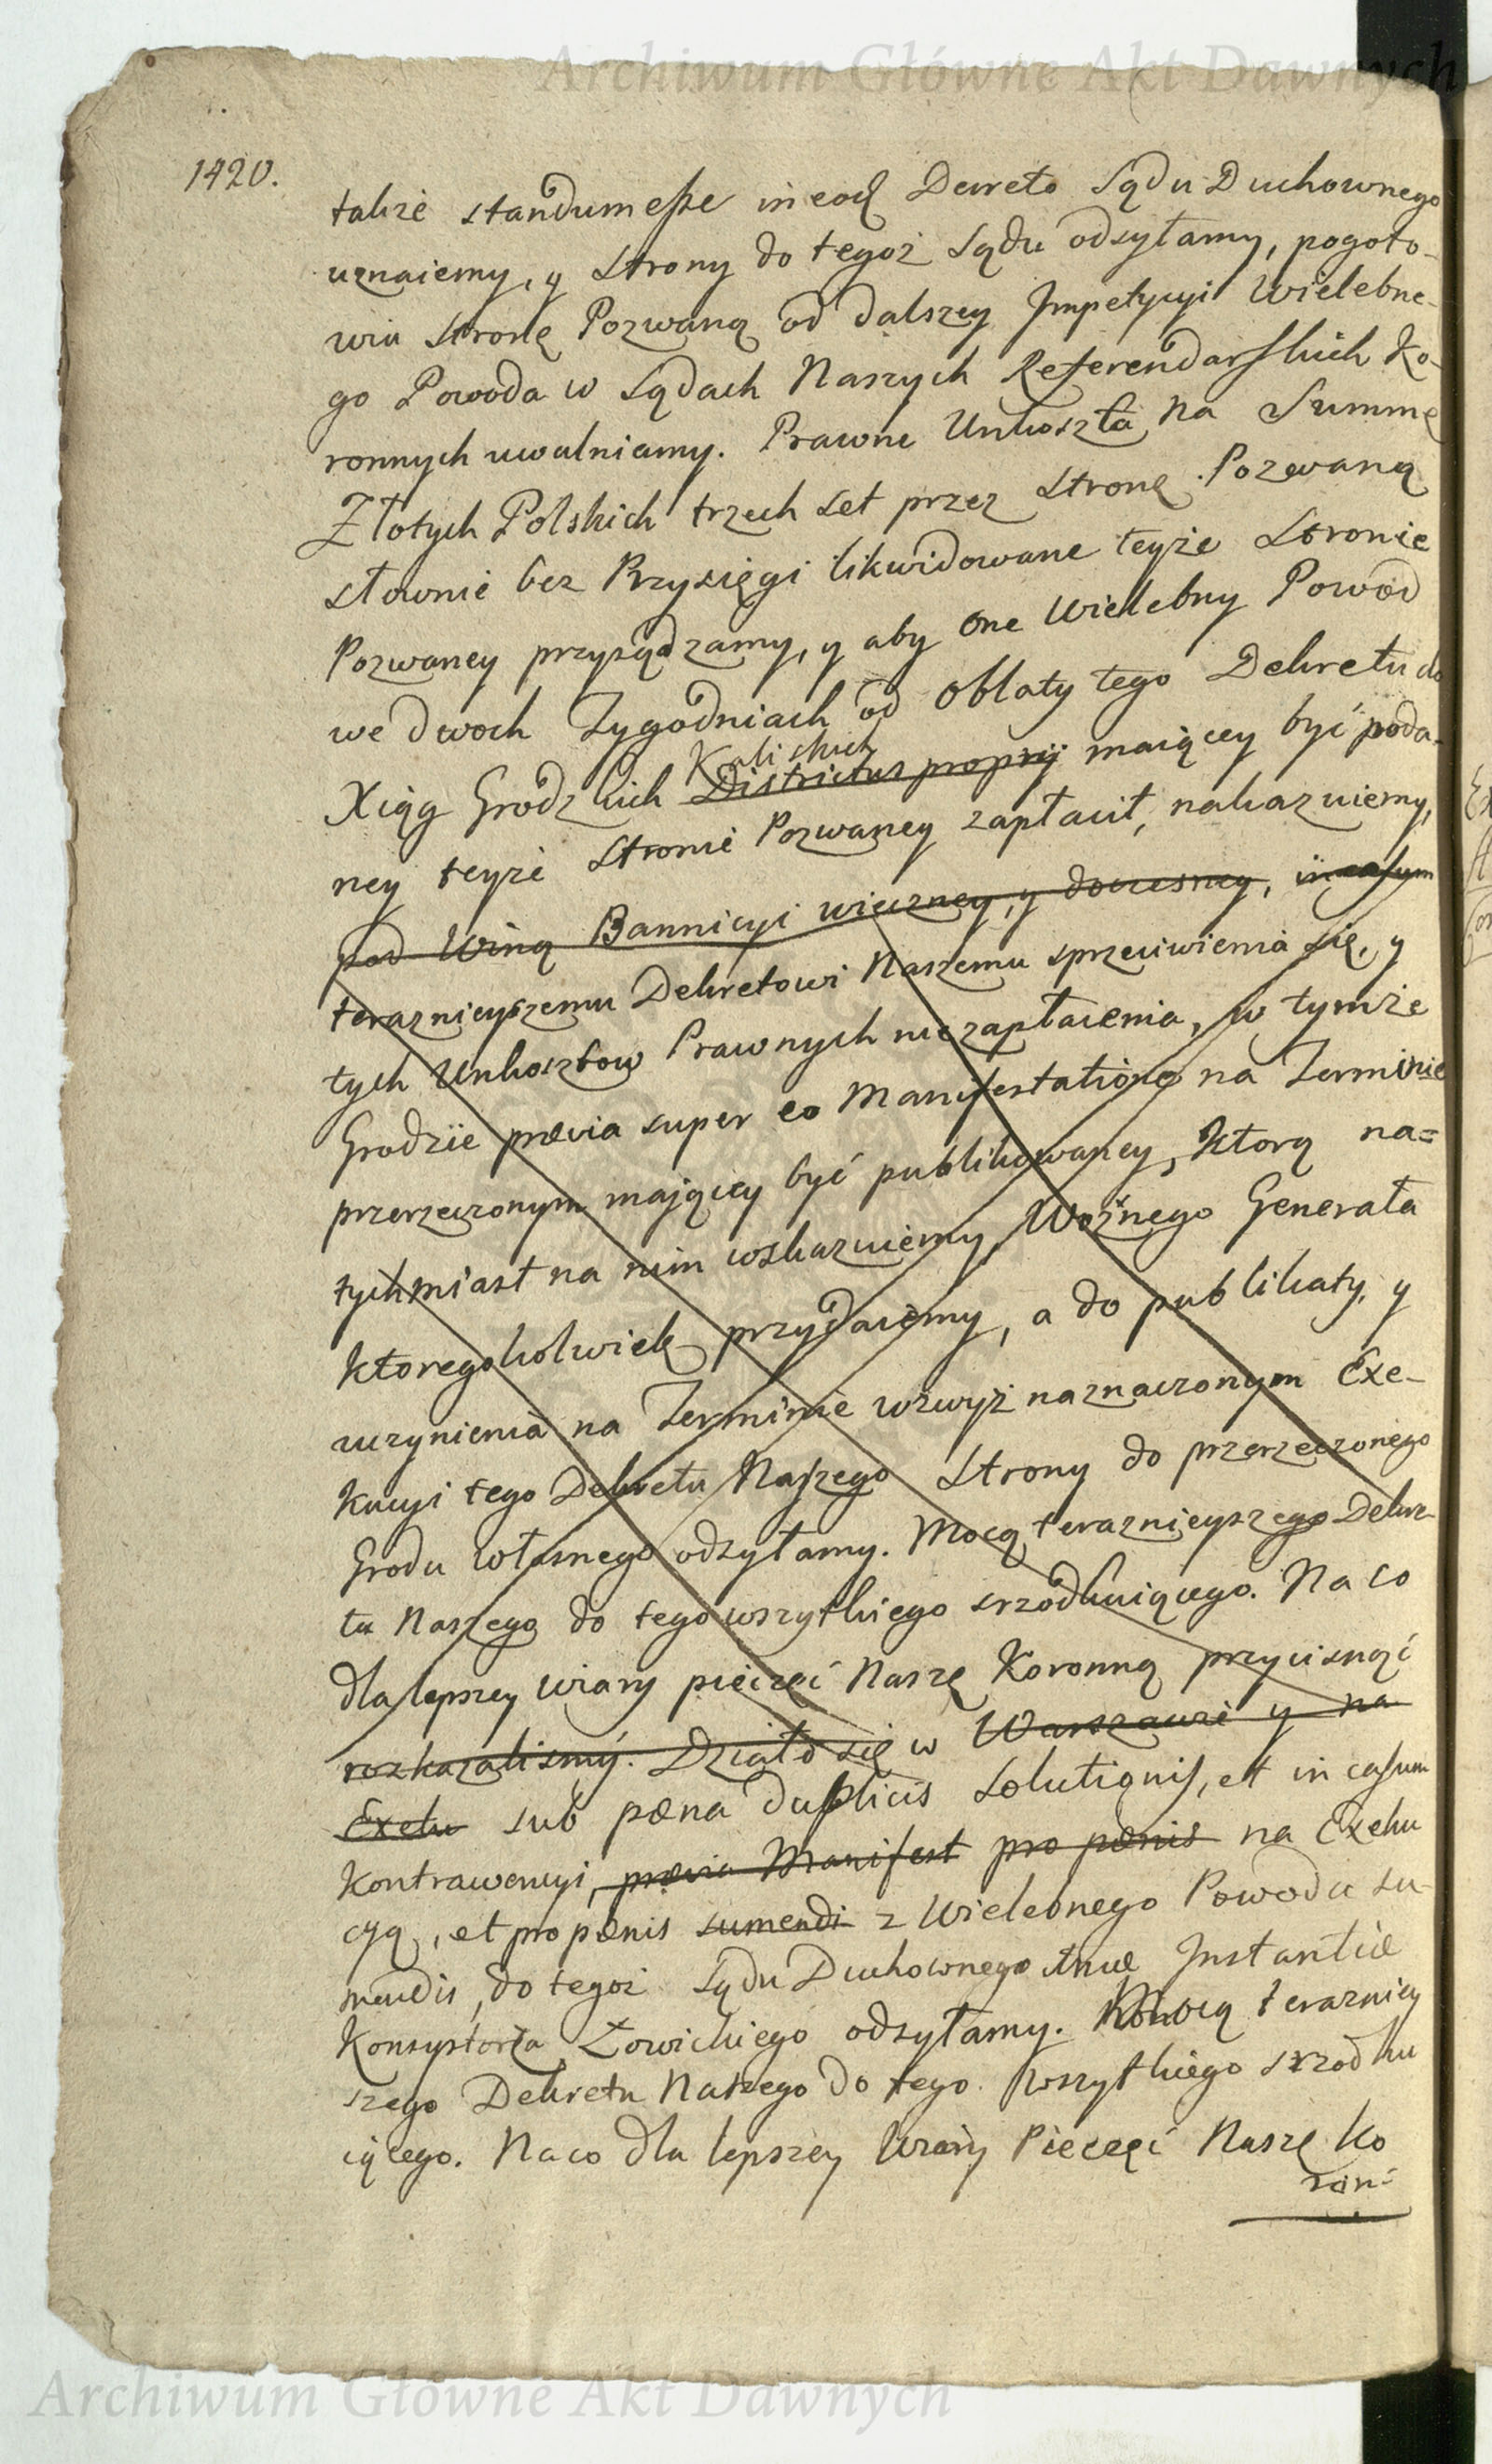 Archiwum Główne Akt Dawnych
1420.
takze standum esse in eod Decreto Sądu Duchownego
uznaiemy, y Strony do tegoz Sądu odsyłamy, pogoto-
wiu Stronę Pozwaną od dalszey Impetycyi Wielebne-
go Powoda w Sądach Naszych Referendarskich Ko-
ronnych uwalniamy. Prawne Unkoszta na Summę
Złotych Polskich trzech Set przez Stronę Pozwaną
słownie bez Przysięgi likwidowane teyże Stronie
Pozwaney przysądzamy, y aby one Wielebny Powod
we dwoch Tygodniach od Oblaty tego Dekretu do
Kaliskich
Xiąg Grodzkich Districtus proprij maiącey być poda-
ney teyże Stronie Pozwaney zapłacił, nakazuiemy,
pod Winą Bannicyi wieczney, y doczesney, in casum
teraznieyszemu Dekretowi Naszemu sprzeciwienia się, y
tych Unkosztow Prawnych niezapłacenia, w tymże
Grodzie prævia super eo Manifestatione na Terminie
przerzeczonym mającey być publikowaney, ktorą na=
tychmiast na nim wskazuiemy, Woźnego Generała
ktoregokolwiek przydaiemy, a do publikaty, y
uczynienia na Terminie wzwyż naznaczonym Exe-
kucyi tego Dekretu Naszego Strony do przerzeczonego
Grodu własnego odsyłamy. Mocą teraznieyszego Dekre-
tu Naszego do tego wszytkiego srzodkuiącego. Na co
dla lepszey wiary pieczęć Naszę Koronną przycisnąć
rozkazalismy. Działo się w Warszawie y na
Exeku sub pœna duplicis Solutionis, et in casum
Kontrawencyi, prævia Manifest pro pœnis na Exeku
cyą, et pro pœnis sumendi z Wielebnego Powoda su-
mendis, do tegoż Sądu Duchownego Instantiæ
Konsystorza Łowickiego odsyłamy. Mocą terazniey
szego Dekretu Naszego do tego wszytkiego srzodku
iącego. Na co dla lepszey Wiary Pieczęć Naszę Ko
ron=
Archiwum Główne Akt Dawnych